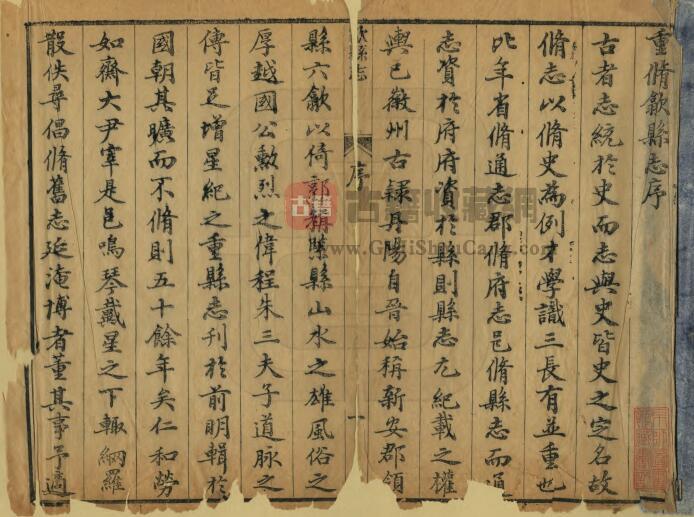 重脩歙縣志序
古者志統於史而志與史皆史之定名故
脩志以脩史為例才學識三長有並重也
比年省脩通志郡脩府志邑脩縣志而通
志資於府府資於縣則縣志尤紀載之權
輿已徽州古隸丹陽自晉始稱新安郡領
歙縣志
序
一
縣六歙以倚郭稱緊縣山水之雄風俗之
厚越國公勳烈之偉程朱三夫子道脉之
傳皆足增星紀之重縣志刊於前明輯於
國朝其曠而不脩則五十餘年矣仁和勞
如齋大尹宰是邑鳴琴戴星之下輙網羅
散佚尋倡脩舊志延淹博者董其事予適
古籍
古籍收藏網
www.GujiShouCang.com